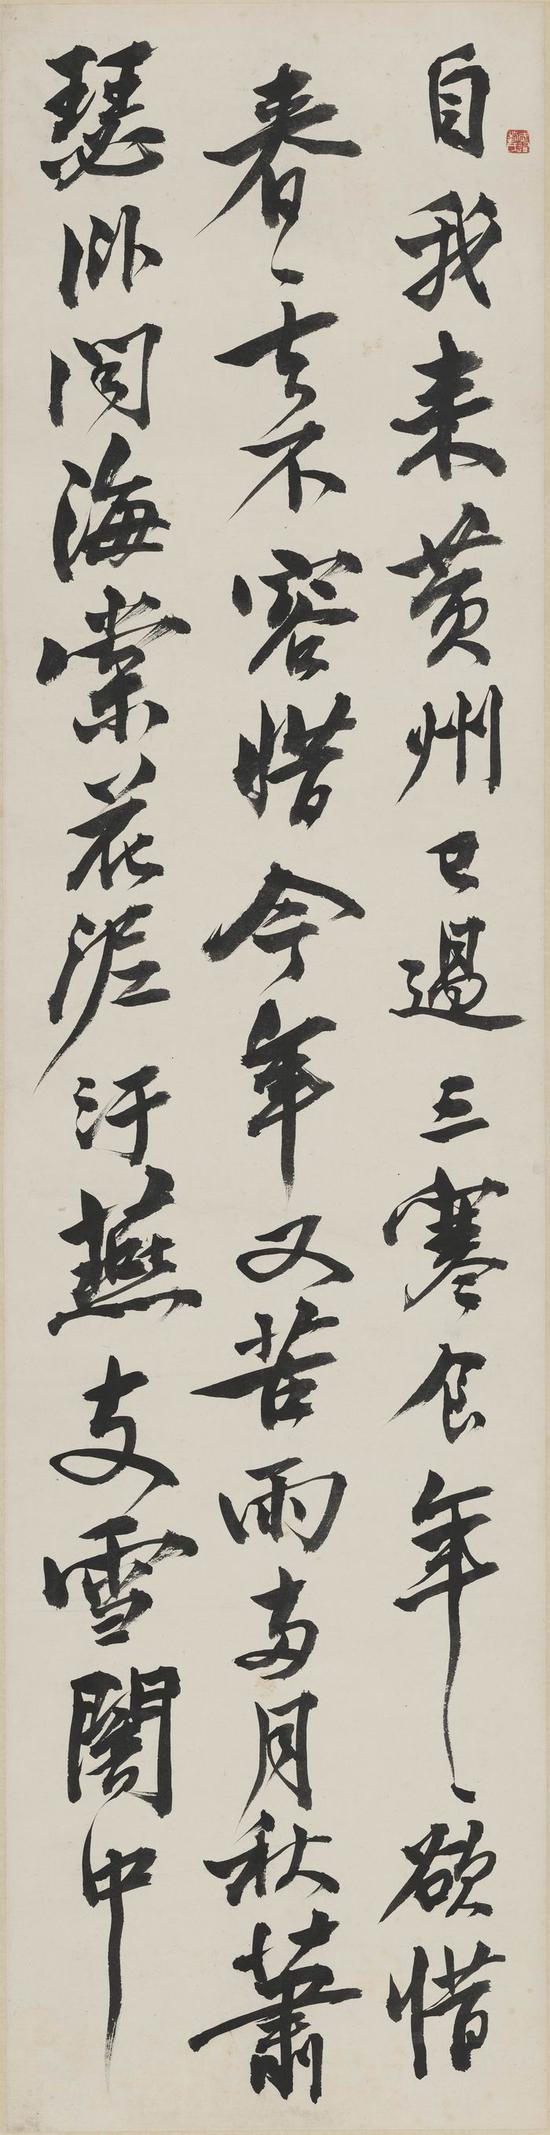 自我来黄州已過三寒食年〻欲惜
春〻去不容惜今年又苦雨兩月秋蕭
瑟卧闻海棠花泥汙燕支雪闇中